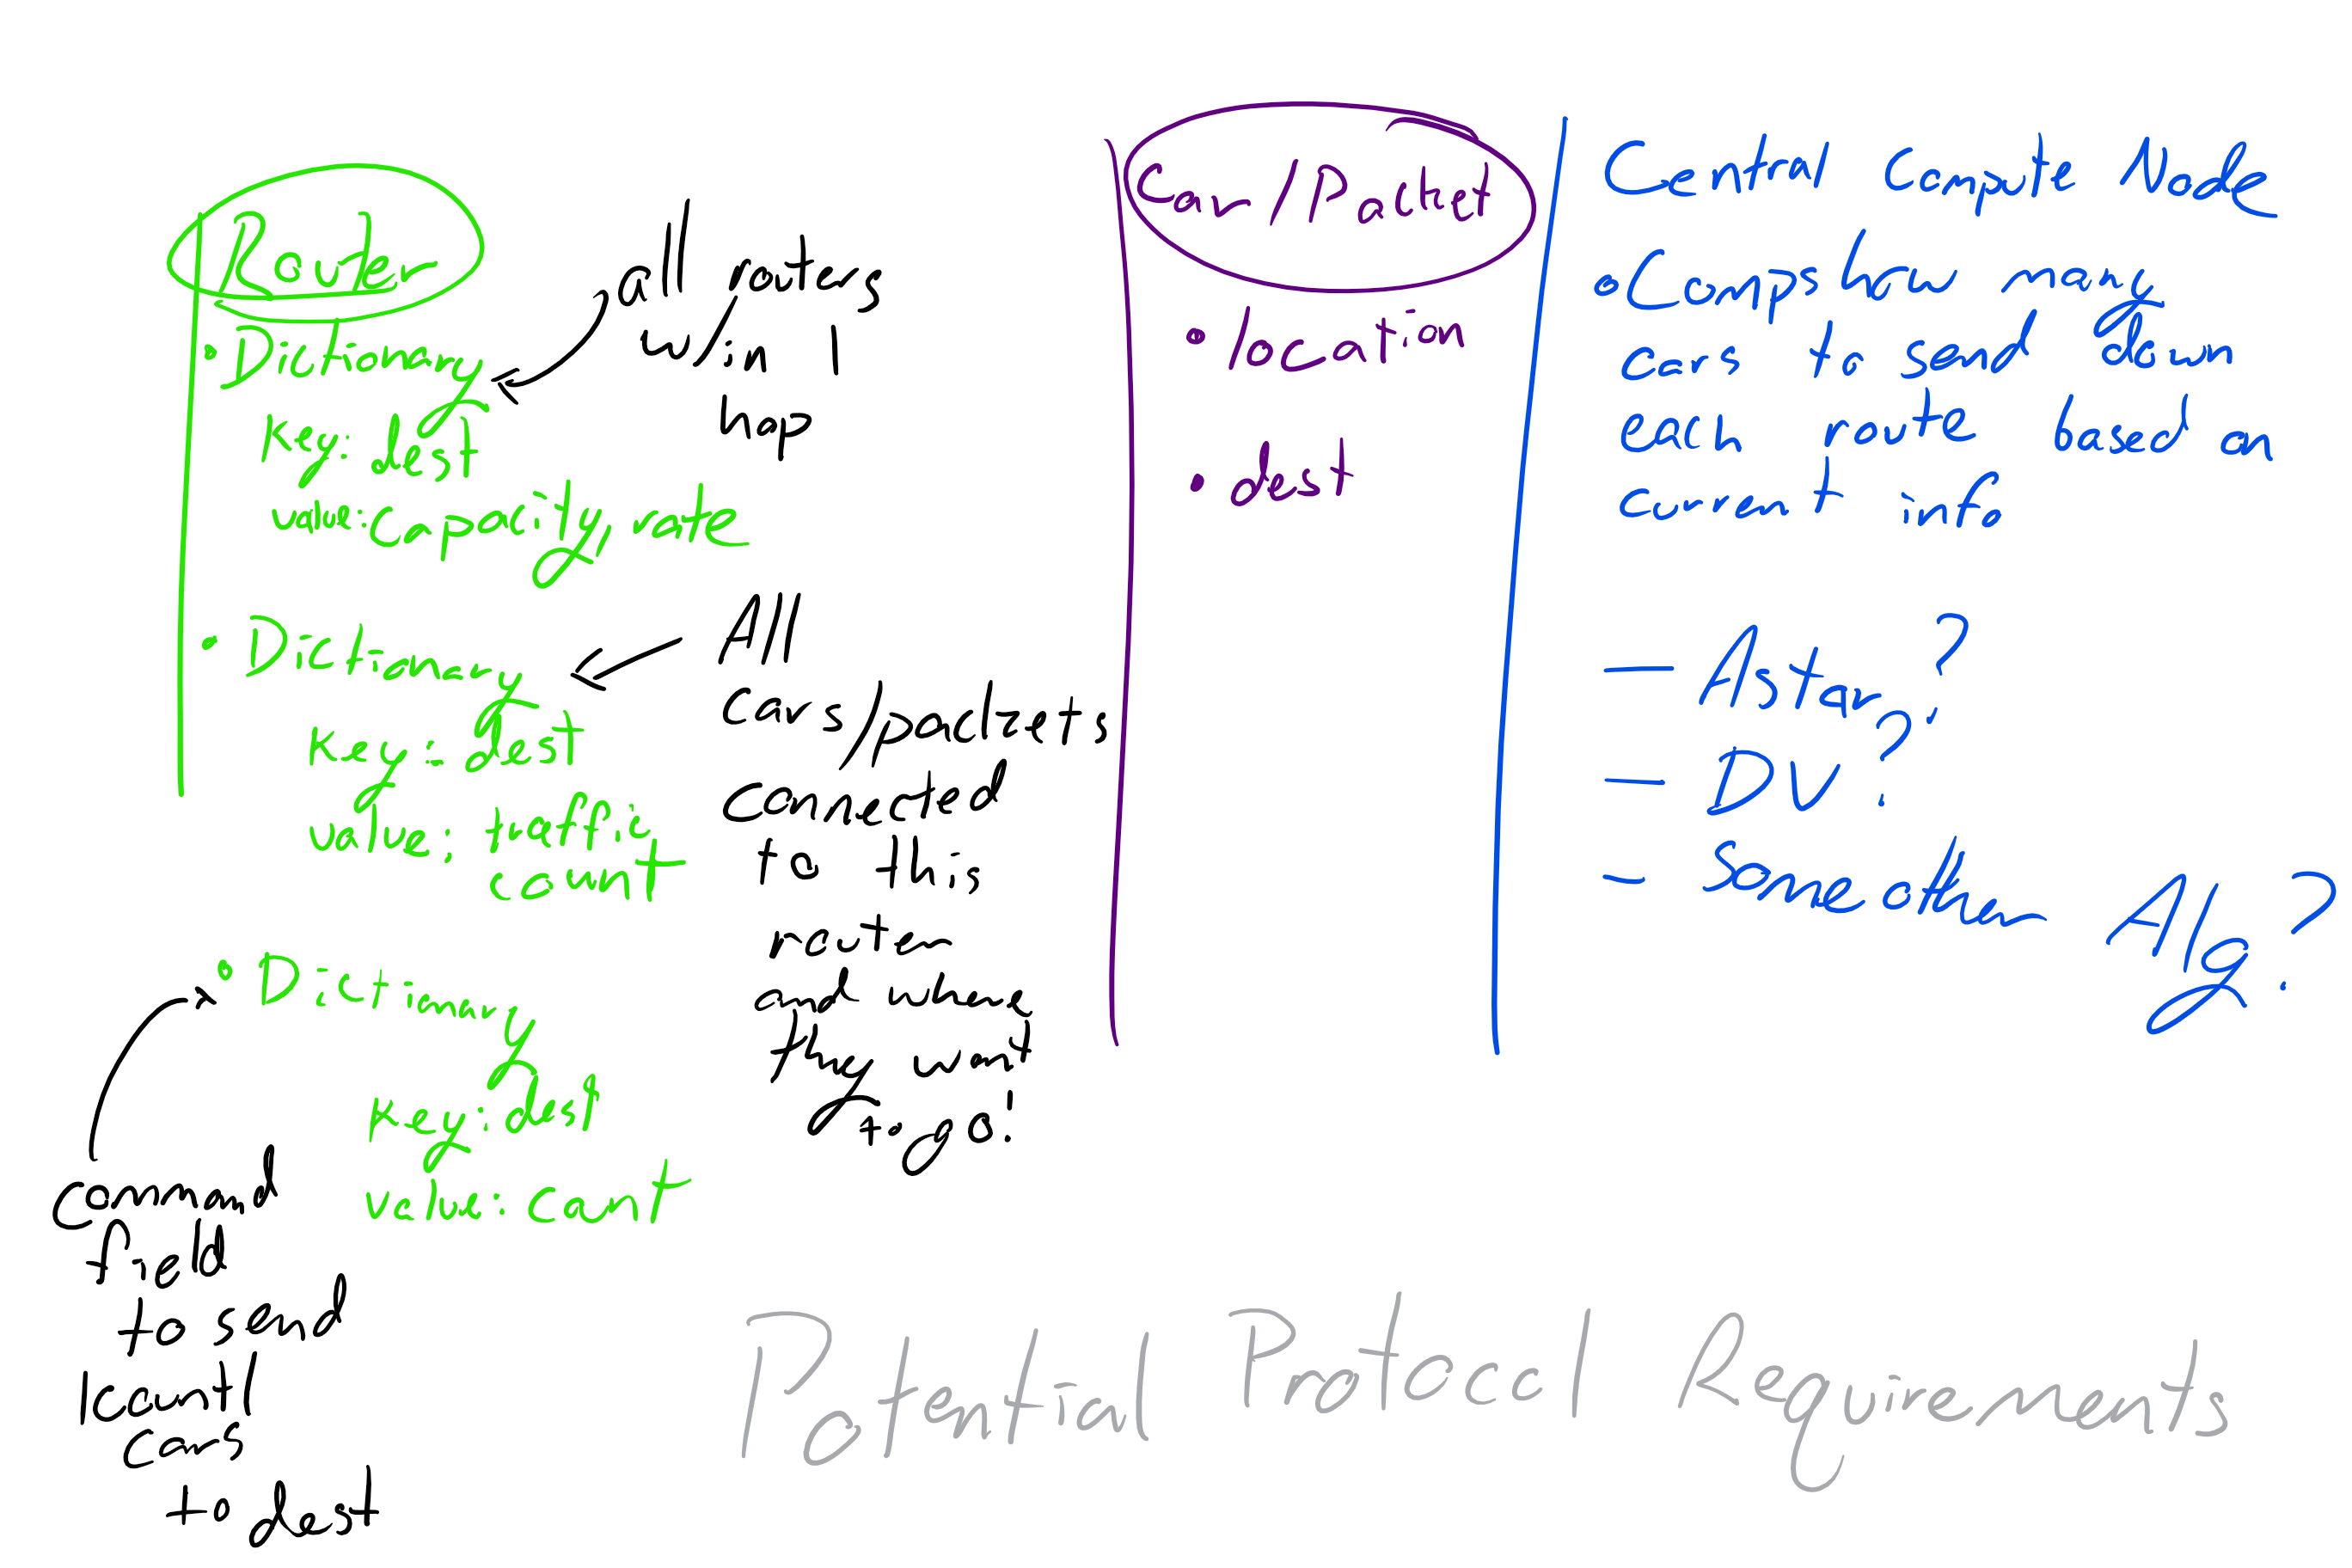 Router
• Dictionary
Key: dest
value: capacity, rate
all routers
w/in 1
hop
• Dictionary
Key: dest
value: traffic
count
All
cars/packets
connected
to this
router
and where
they want
to go!
• Dictionary
Key: dest
value: count
command
field
to send
|count|
cars
to dest
Car/Packet
• location
• dest
Central Compute Node
• Comps how many
cars to send down
each route based on
current info
- Astar?
- DV?
- Some other Alg?
Potential Protocol Requirements